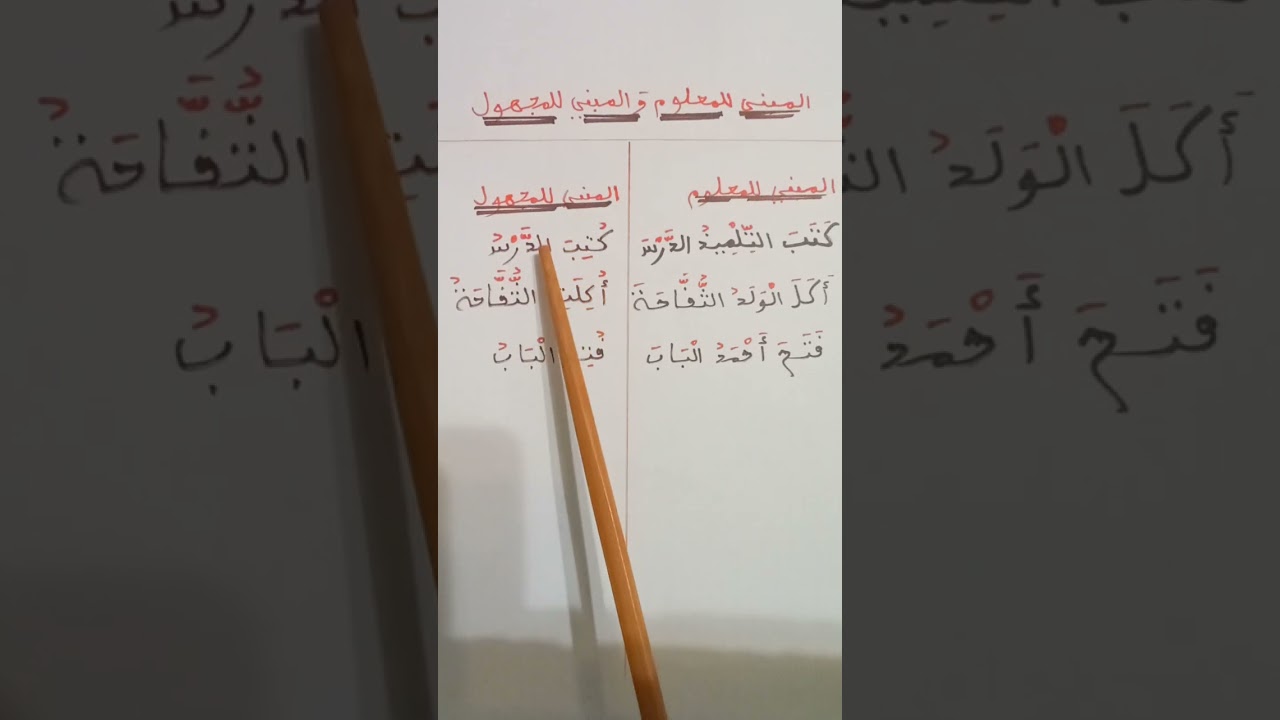 المبني للمعلوم و المبني للمجهول
المبني للمعلوم
كَتَبَ التِّلْمِيذُ الدَّرْسَ
أَكَلَ الْوَلَدُ التُّفَّاحَةَ
فَتَحَ أَحْمَدُ الْبَابَ
المبني للمجهول
كُتِبَ الدَّرْسُ
أُكِلَتِ التُّفَّاحَةُ
الْبَابُ